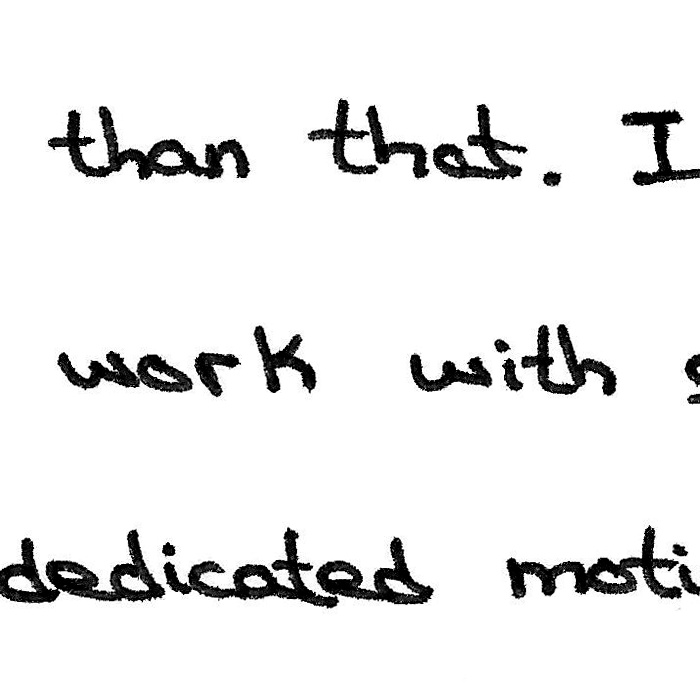 than that. I
work with
dedicated moti